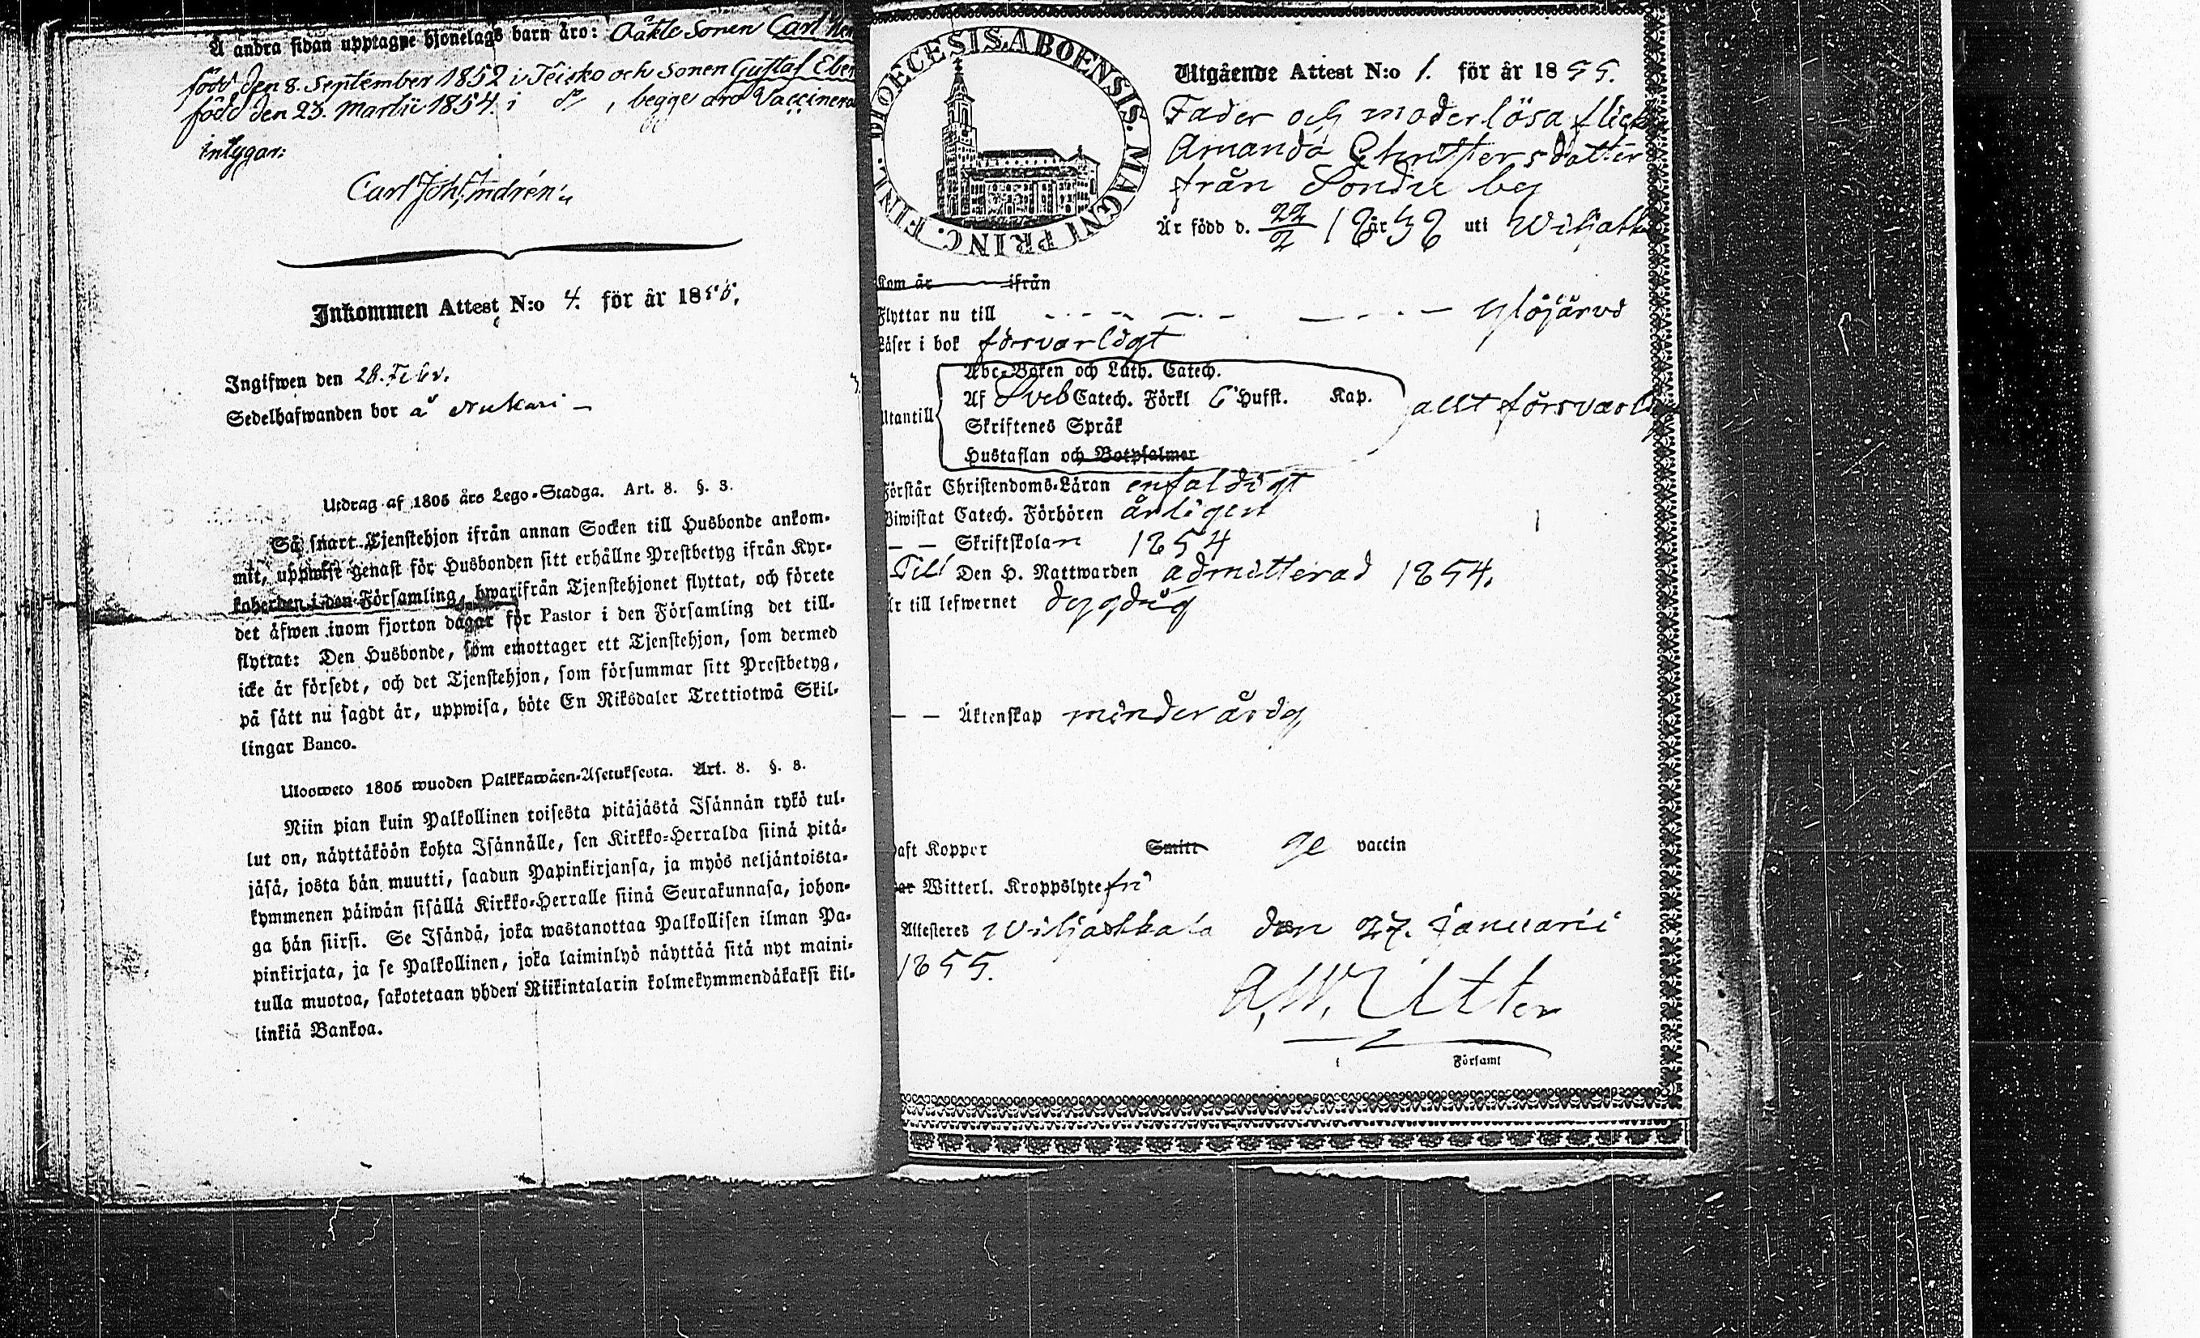 Å andra sidan upptagne hjonelags barn äro: Äkte Sonen Carl
född den 8. September 1852 i Teisko och Sonen Gustaf
född den 23. Martii 1854. i d:o, begge äro Vaccinera
intygar:
Carl Joh. Indrén.
Inkommen Attest N:o 4. för år 1855.
Ingifwen den 28. Febr.
Sedelhafwanden bor å
Utdrag af 1805 års Lego-Stadga. Art. 8. §. 3.
Så snart Tjenstehjon ifrån annan Socken till Husbonde ankom-
mit, uppwise genast för Husbonden sitt erhållne Prestbetyg ifrån Kyr-
koherden i den Församling, hwarifrån Tjenstehjonet flyttat, och förete
det äfwen inom fjorton dagar för Pastor i den Församling det till-
flyttat: Den Husbonde, som emottager ett Tjenstehjon, som dermed
icke är försedt, och det Tjenstehjon, som försummar sitt Prestbetyg,
på sätt nu sagdt är, uppwisa, böte En Riksdaler Trettiotwå Skil-
lingar Banco.
Ulosweto 1805 wuoden Palkkawäen-Asetuksesta. Art. 8. §. 3.
Niin pian kuin Palkollinen toisesta pitäjästä Isännän tykö tul-
lut on, näyttäköön kohta Isännälle, sen Kirkko-Herralda siinä pitä-
jäsä, josta hän muutti, saadun Papinkirjansa, ja myös neljäntoista-
kymmenen päiwän sisällä Kirkko-Herralle siinä Seurakunnasa, johon-
ga hän siirsi. Se Isändä, joka wastanottaa Palkollisen ilman Pa-
pinkirjata, ja se Palkollinen, joka laiminlyö näyttää sitä nyt maini-
tulla muotoa, sakotetaan yhden Riikintalarin kolmekymmendäkaksi kil-
linkiä Bankoa.
DIOECESIS ABOENSIS. MAGNI PRINC. FINL.
Utgående Attest N:o 1. för år 1855.
Fader och moderlösa flick
Amanda Christersdotter
från Sondu by
Är född d. 22/2 18 år 38 uti Wiljakk
Kom år ifrån
Flyttar nu till Ylöjärvi
Läser i bok försvarligt
Abc-Boken och Luth. Catech.
Af Sveb Catech. Förkl 6 Hufst. Kap.
allt försvarl
Utantill
Skriftenes Språk
Hustaflan och Botpsalmer
Förstår Christendoms-Läran enfaldigt
Biwistat Catech. Förhören årligen
– – Skriftskolan 1854
Till Den H. Nattwarden admitterad 1854.
är till lefwernet dygdig
– – Äktenskap minderårig
haft Koppor Smitt ge vaccin
har Witterl. Kroppslyte fri
Attesteres Wiljakkala den 27. Januarii
1855.
A. W. Utter
Församl